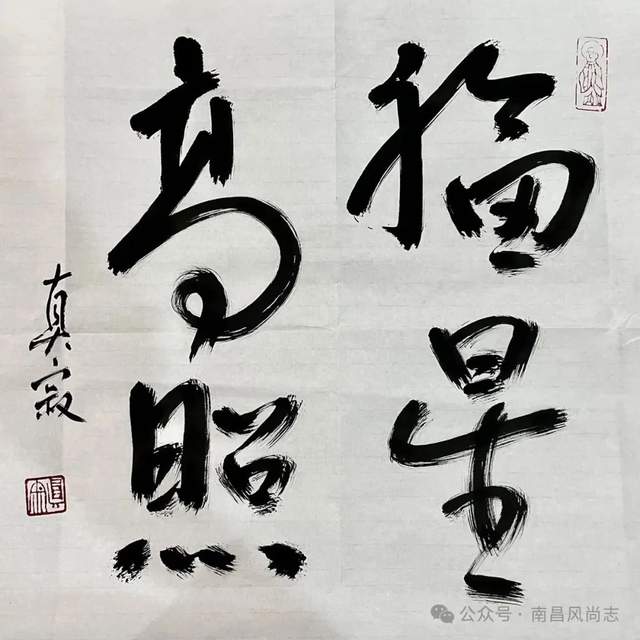 福星
高照
真寂
公众号·南昌风尚志